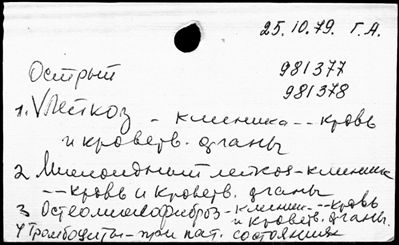 25.10.79. Г.А.
Острый 981377
981378
1. Лейкоз - клиника -- кровь
и кроветв. органы
2 Миелоидный лейкоз - клиника
-- кровь и кроветв. органы
3 Остеомиелофиброз - клиник. -- кровь
и кроветв. органы.
4 Тромбоциты - при пат. состояниях